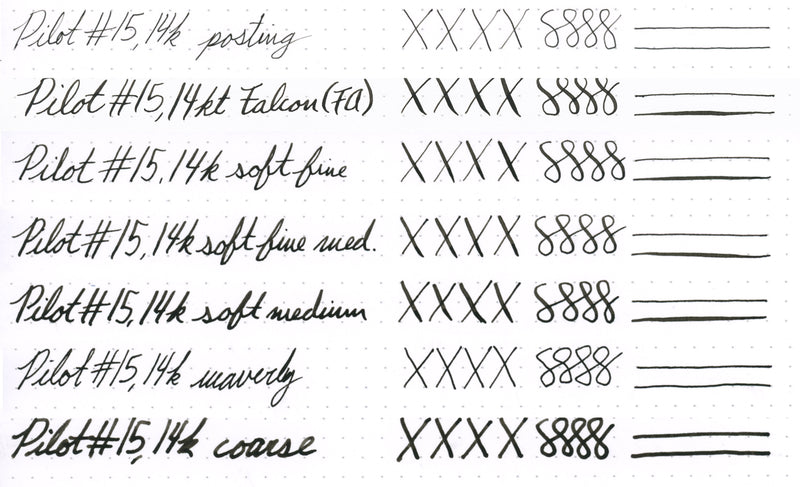 Pilot #15, 14k posting XXXX 8888
Pilot #15, 14kt Falcon (FA) XXXX 8888
Pilot #15, 14k soft fine XXXX 8888
Pilot #15, 14k soft fine med. XXXX 8888
Pilot #15, 14k soft medium XXXX 8888
Pilot #15, 14k waverly XXXX 8888
Pilot #15, 14k coarse XXXX 8888